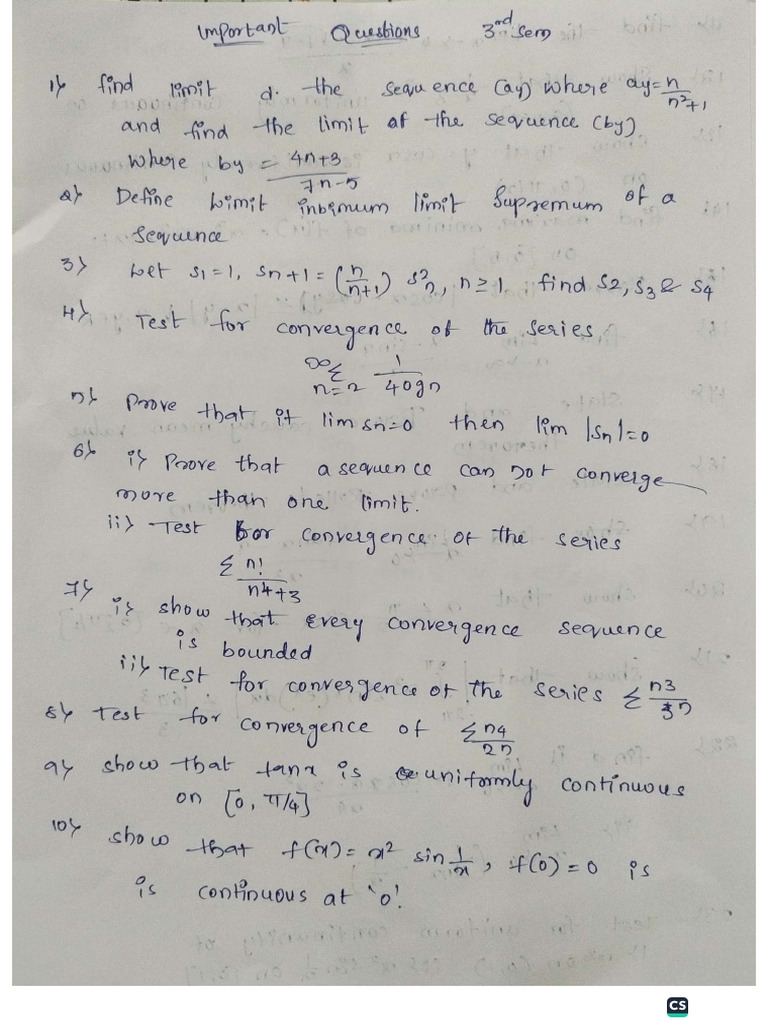 Important Questions 3rd Sem
1) find limit d. the sequence (ay) where ay = n/n²+1
and find the limit of the sequence (by)
where by = 4n+3/7n-5
2) Define Limit inbimum limit Supremum of a
sequence
3) Let s1 = 1, sn+1 = (n/n+1) s²n, n ≥ 1, find s2, s3 & s4
4) Test for convergence of the series,
∞Σn=2 1/40gn
5) Prove that if lim sn=0 then lim |sn|=0
6) i) Prove that a sequence can not converge
more than one limit.
ii) Test for convergence of the series
Σ n!/n4+3
7) i) show that every convergence sequence
is bounded
ii) Test for convergence of the series Σ n3/3n
8) Test for convergence of Σ n4/2n
9) show that tanx is uniformly continuous
on [0, π/4]
10) show that f(x) = x² sin 1/x, f(0) = 0 is
is continuous at '0'.
CS